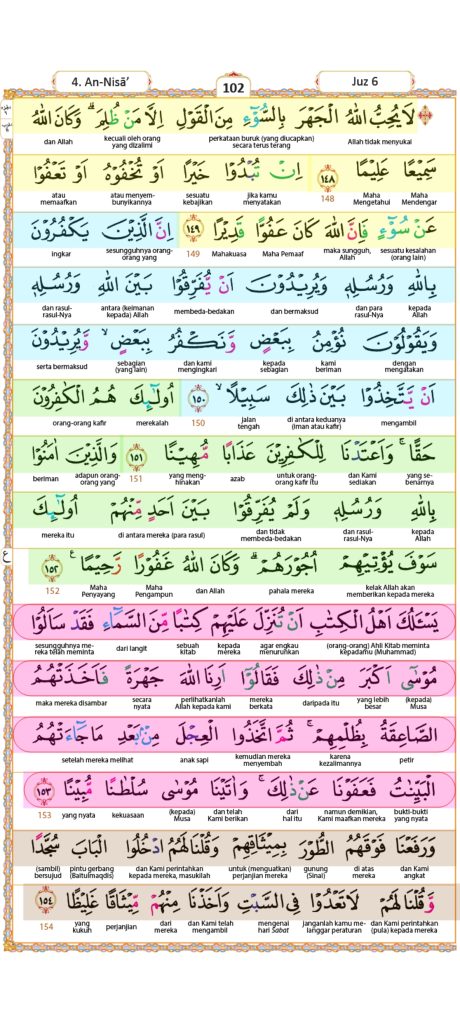 4. An-Nisā’
102
Juz 6
لَا يُحِبُّ اللّٰهُ الْجَهْرَ بِالسُّوْۤءِ مِنَ الْقَوْلِ اِلَّا مَنْ ظُلِمَ ۗ وَكَانَ اللّٰهُ
Allah tidak menyukai perkataan buruk (yang diucapkan) secara terus terang kecuali oleh orang yang dizalimi dan Allah
سَمِيْعًا عَلِيْمًا ١٤٨ اِنْ تُبْدُوْا خَيْرًا اَوْ تُخْفُوْهُ اَوْ تَعْفُوْا
Maha Mendengar Maha Mengetahui 148 jika kamu menyatakan sesuatu kebajikan atau menyembunyikannya atau memaafkan
عَنْ سُوْۤءٍ فَاِنَّ اللّٰهَ كَانَ عَفُوًّا قَدِيْرًا ١٤٩ اِنَّ الَّذِيْنَ يَكْفُرُوْنَ
sesuatu kesalahan (orang lain) maka sungguh, Allah Maha Pemaaf Mahakuasa 149 sesungguhnya orang-orang yang ingkar
بِاللّٰهِ وَرُسُلِهٖ وَيُرِيْدُوْنَ اَنْ يُّفَرِّقُوْا بَيْنَ اللّٰهِ وَرُسُلِهٖ
kepada Allah dan para rasul-Nya dan bermaksud membeda-bedakan antara (keimanan kepada) Allah dan rasul-rasul-Nya
وَيَقُوْلُوْنَ نُؤْمِنُ بِبَعْضٍ وَّنَكْفُرُ بِبَعْضٍۙ وَّيُرِيْدُوْنَ
dengan mengatakan kami beriman kepada sebagian dan kami mengingkari sebagian (yang lain) serta bermaksud
اَنْ يَّتَّخِذُوْا بَيْنَ ذٰلِكَ سَبِيْلًاۙ ١٥٠ اُولٰۤىِٕكَ هُمُ الْكٰفِرُوْنَ
mengambil di antara keduanya (iman atau kafir) jalan tengah 150 merekalah orang-orang kafir
حَقًّا ۚ وَاَعْتَدْنَا لِلْكٰفِرِيْنَ عَذَابًا مُّهِيْنًا ١٥١ وَالَّذِيْنَ اٰمَنُوْا
yang sebenarnya dan Kami sediakan untuk orang-orang kafir itu azab yang menghinakan 151 adapun orang-orang yang beriman
بِاللّٰهِ وَرُسُلِهٖ وَلَمْ يُفَرِّقُوْا بَيْنَ اَحَدٍ مِّنْهُمْ اُولٰۤىِٕكَ
kepada Allah dan rasul-rasul-Nya dan tidak membeda-bedakan di antara mereka (para rasul) mereka itu
سَوْفَ يُؤْتِيْهِمْ اُجُوْرَهُمْ ۗ وَكَانَ اللّٰهُ غَفُوْرًا رَّحِيْمًا ۚ ١٥٢
kelak Allah akan memberikan kepada mereka pahala mereka dan Allah Maha Pengampun Maha Penyayang 152
ع
يَسْـَٔلُكَ اَهْلُ الْكِتٰبِ اَنْ تُنَزِّلَ عَلَيْهِمْ كِتٰبًا مِّنَ السَّمَاۤءِ فَقَدْ سَاَلُوْا
(orang-orang) Ahli Kitab meminta kepadamu (Muhammad) agar engkau menurunkan kepada mereka sebuah kitab dari langit sesungguhnya mereka telah meminta
مُوْسٰٓى اَكْبَرَ مِنْ ذٰلِكَ فَقَالُوْٓا اَرِنَا اللّٰهَ جَهْرَةً فَاَخَذَتْهُمُ
(kepada) Musa yang lebih besar daripada itu mereka berkata perlihatkanlah Allah kepada kami secara nyata maka mereka disambar
الصَّاعِقَةُ بِظُلْمِهِمْ ۚ ثُمَّ اتَّخَذُوا الْعِجْلَ مِنْۢ بَعْدِ مَا جَاۤءَتْهُمُ
petir karena kezalimannya kemudian mereka menyembah anak sapi setelah mereka melihat
الْبَيِّنٰتُ فَعَفَوْنَا عَنْ ذٰلِكَ ۚ وَاٰتَيْنَا مُوْسٰى سُلْطٰنًا مُّبِيْنًا ١٥٣
bukti-bukti yang nyata namun demikian, Kami maafkan mereka dari hal itu dan telah Kami berikan (kepada) Musa kekuasaan yang nyata 153
وَرَفَعْنَا فَوْقَهُمُ الطُّوْرَ بِمِيْثَاقِهِمْ وَقُلْنَا لَهُمُ ادْخُلُوا الْبَابَ سُجَّدًا
dan Kami angkat di atas mereka gunung (Sinai) untuk (menguatkan) perjanjian mereka dan Kami perintahkan kepada mereka, masukilah pintu gerbang (Baitulmaqdis) (sambil) bersujud
وَّقُلْنَا لَهُمْ لَا تَعْدُوْا فِى السَّبْتِ وَاَخَذْنَا مِنْهُمْ مِّيْثَاقًا غَلِيْظًا ١٥٤
dan Kami perintahkan (pula) kepada mereka janganlah kamu melanggar peraturan mengenai hari Sabat dan Kami telah mengambil dari mereka perjanjian yang kukuh 154